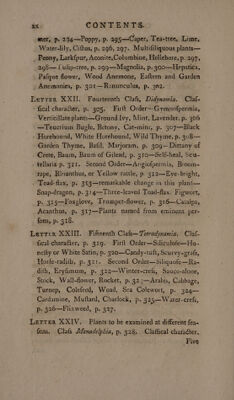 xx CONTENTS.
mer, p. 294—Poppy, p. 295—Caper, Tea-tree, Lime,
Water-lily, Ciſtus, p. 296, 297. Multiſiliquous plants—
Peony, Larkſpur, Aconite, Columbine, Hellebore, p. 297,
298— Tulip-tree, p. 299—Magnolia, p. 300—Hepatica,
Paſque flower, Wood Anemone, Eaſtern and Garden
Anemonies, p. 301—Ranunculus, p. 302.
Letter XXII. Fourteenth Claſs, Didynamia. Claſ-
ſical character, p. 305. Firſt Order—Gymnoſpermia,
Verticillate plants—Ground Ivy, Mint, Lavender, p. 306
—Teucrium Bugle, Betony, Cat-mint, p. 307—Black
Horehound, White Horehound, Wild Thyme, p. 308—
Garden Thyme, Baſil, Marjoram, p. 309—Dittany of
Crete, Baum, Baum of Gilead, p. 310—Self-heal, Scu-
tellaria p. 311. Second Order—Angioſpermia, Broom-
rape, Rhinanthus, or Yellow rattle, p. 312—Eye-bright,
Toad-flax, p. 313—remarkable change in this plant—
Snap-dragon, p. 314—Three-leaved Toad-flax, Figwort,
p. 315—Foxglove, Trumpet-flower, p. 316—Catalpa,
Acanthus, p. 317—Plants named from eminent per-
ſons, p. 318.
Letter XXIII. Fifteenth Claſs—Tetradynamia. Claſ-
ſical character, p. 319. Firſt Order—Siliculoſe—Ho-
neſty or White Satin, p. 320—Candy-tuft, Scurvy-graſs,
Horſe-radiſh, p. 321. Second Order—Siliquoſe—Ra-
diſh, Eryſimum, p. 322—Winter-creſs, Sauce-alone,
Stock, Wall-flower, Rocket, p. 323—Arabis, Cabbage,
Turnep, Coleſeed, Woad, Sea Colewort, p. 324—
Cardamine, Muſtard, Charlock, p. 325—Water-creſs,
p. 326—Flixweed, p. 327.
Letter XXIV. Plants to be examined at different ſea-
ſons. Claſs Monadelphia, p. 328. Claſſical character.
Five